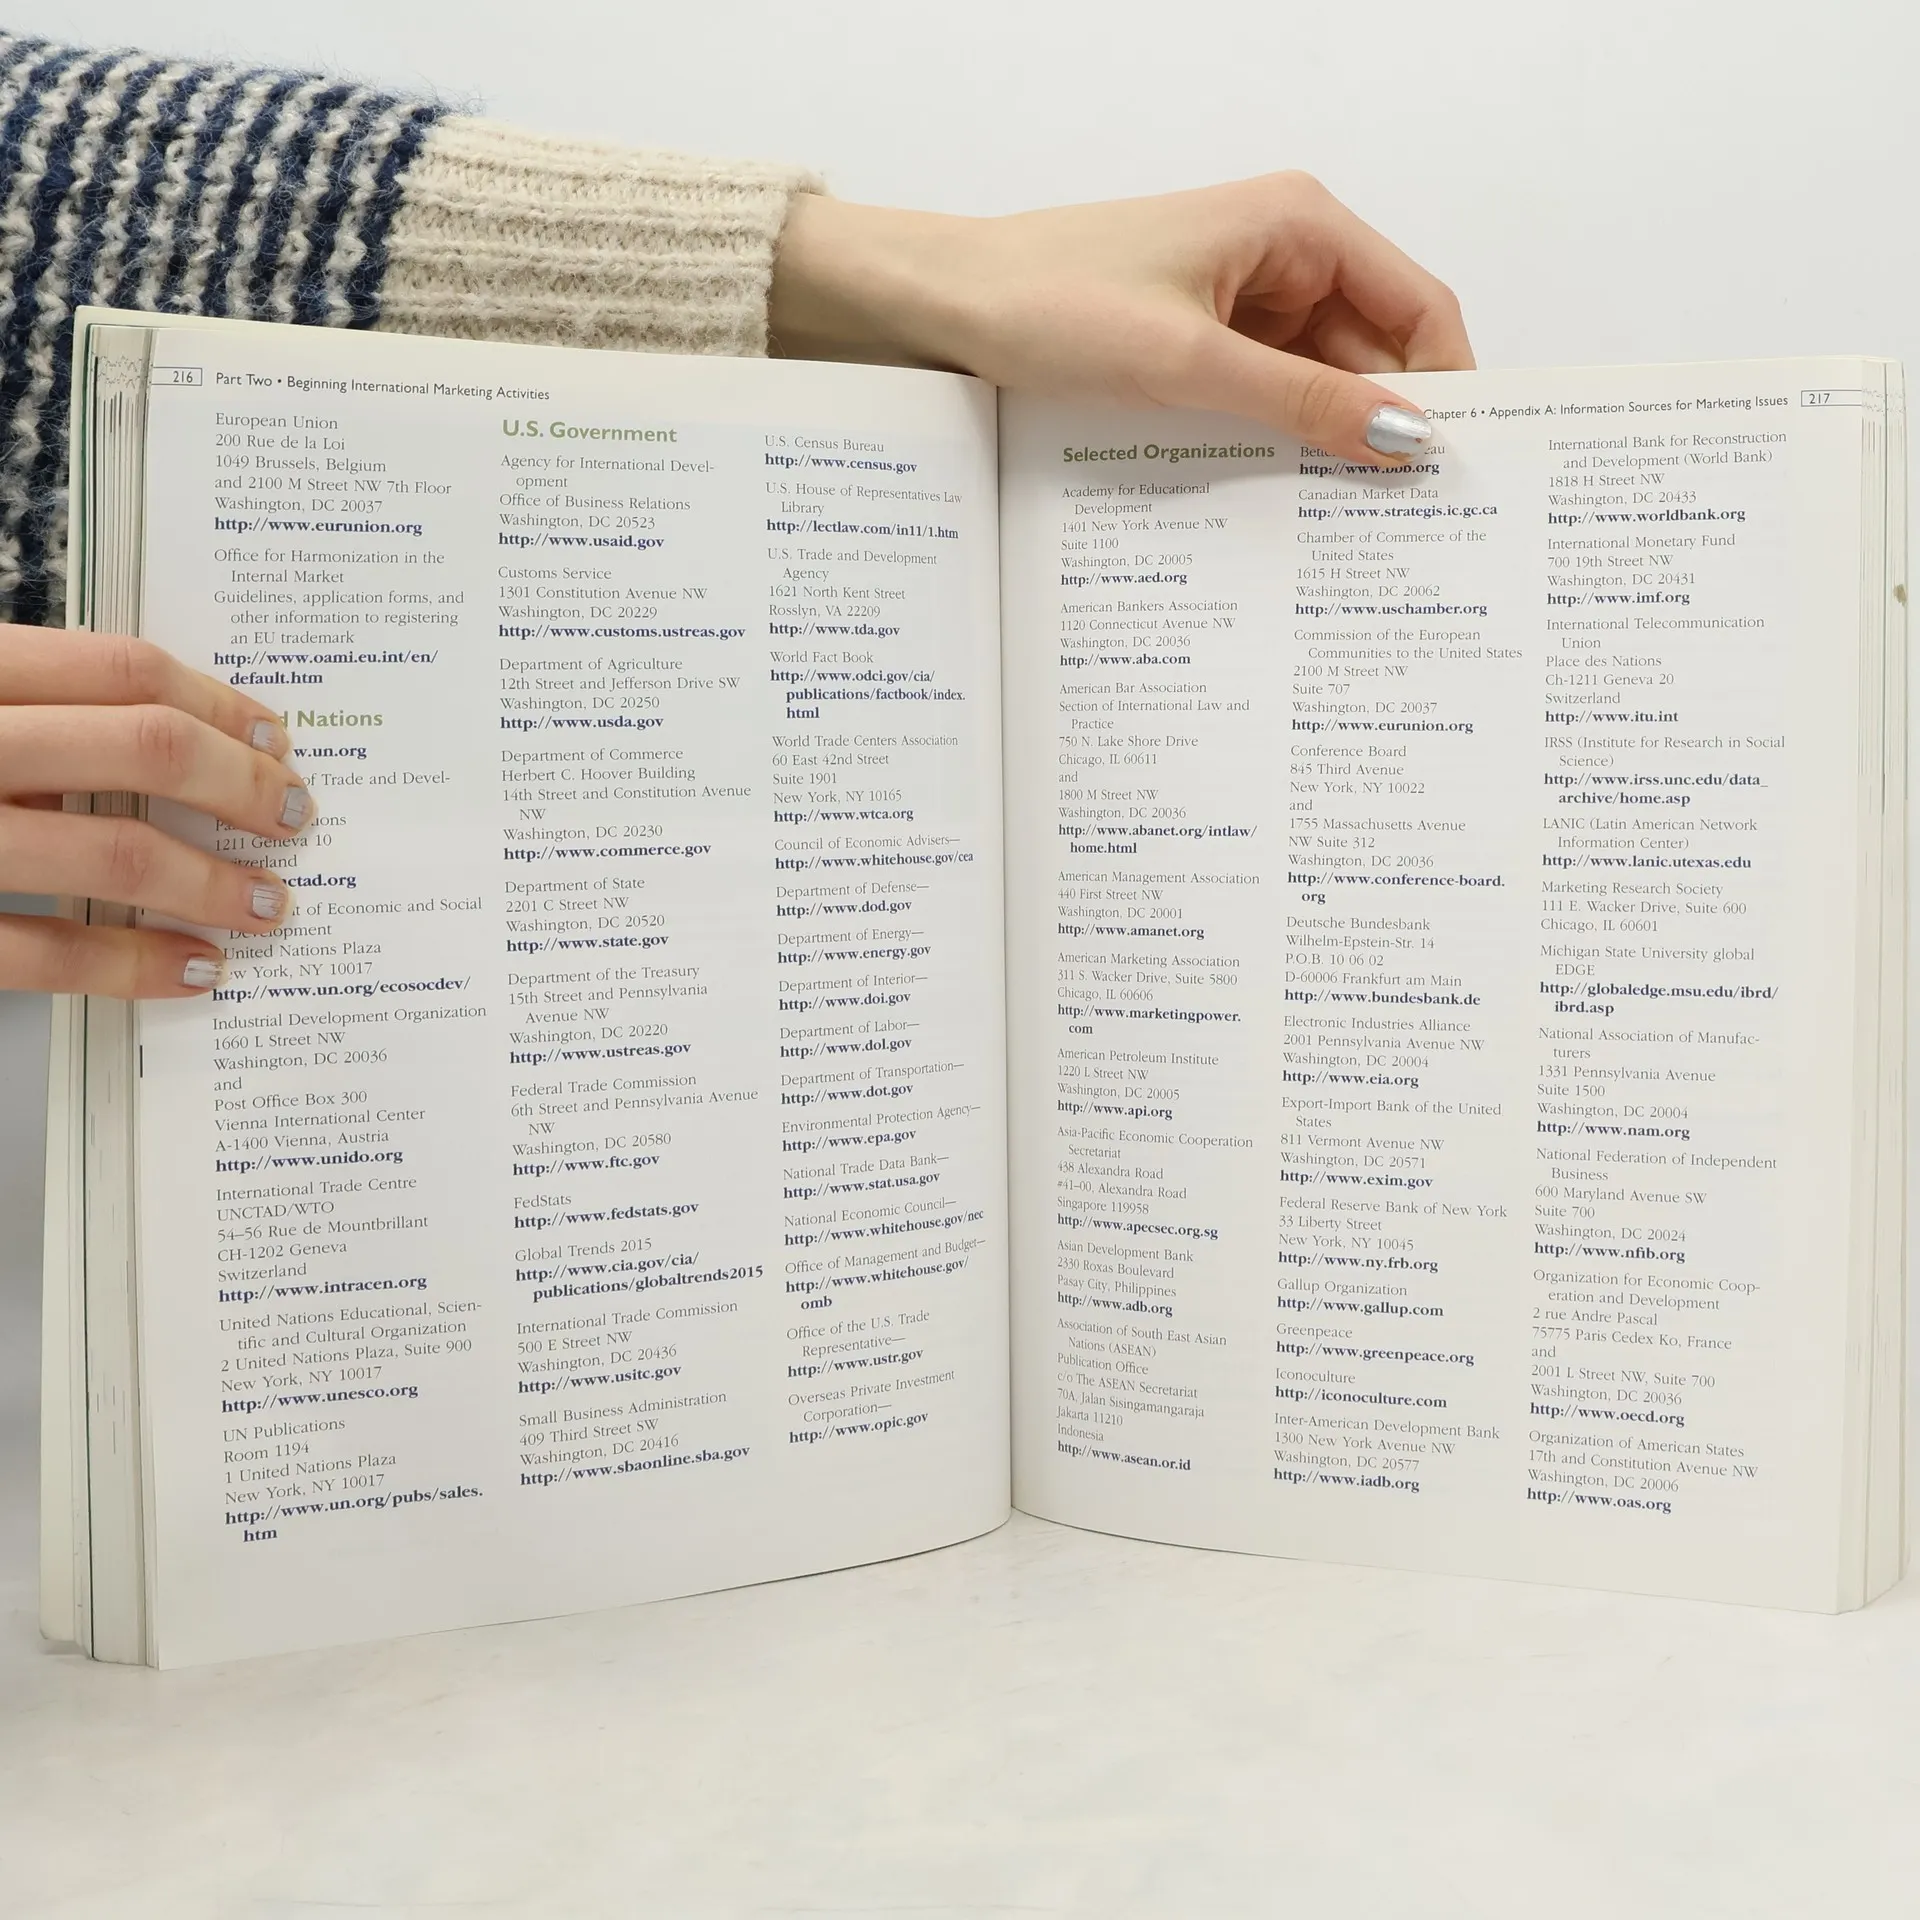 216 Part Two • Beginning International Marketing Activities
European Union
200 Rue de la Loi
1049 Brussels, Belgium
and 2100 M Street NW 7th Floor
Washington, DC 20037
http://www.eurunion.org
Office for Harmonization in the
Internal Market
Guidelines, application forms, and
other information to registering
an EU trademark
http://www.oami.eu.int/en/
default.htm
Nations
w.un.org
of Trade and Devel-
1211 Geneva 10
of Economic and Social
United Nations Plaza
York, NY 10017
http://www.un.org/ecosocdev/
Industrial Development Organization
1660 L Street NW
Washington, DC 20036
and
Post Office Box 300
Vienna International Center
A-1400 Vienna, Austria
http://www.unido.org
International Trade Centre
UNCTAD/WTO
54–56 Rue de Mountbrillant
CH-1202 Geneva
Switzerland
http://www.intracen.org
United Nations Educational, Scien-
tific and Cultural Organization
2 United Nations Plaza, Suite 900
New York, NY 10017
http://www.unesco.org
UN Publications
Room 1194
1 United Nations Plaza
New York, NY 10017
http://www.un.org/pubs/sales.
htm
U.S. Government
Agency for International Devel-
opment
Office of Business Relations
Washington, DC 20523
http://www.usaid.gov
Customs Service
1301 Constitution Avenue NW
Washington, DC 20229
http://www.customs.ustreas.gov
Department of Agriculture
12th Street and Jefferson Drive SW
Washington, DC 20250
http://www.usda.gov
Department of Commerce
Herbert C. Hoover Building
14th Street and Constitution Avenue
NW
Washington, DC 20230
http://www.commerce.gov
Department of State
2201 C Street NW
Washington, DC 20520
http://www.state.gov
Department of the Treasury
15th Street and Pennsylvania
Avenue NW
Washington, DC 20220
http://www.ustreas.gov
Federal Trade Commission
6th Street and Pennsylvania Avenue
NW
Washington, DC 20580
http://www.ftc.gov
FedStats
http://www.fedstats.gov
Global Trends 2015
http://www.cia.gov/cia/
publications/globaltrends2015
International Trade Commission
500 E Street NW
Washington, DC 20436
http://www.usitc.gov
Small Business Administration
409 Third Street SW
Washington, DC 20416
http://www.sbaonline.sba.gov
U.S. Census Bureau
http://www.census.gov
U.S. House of Representatives Law
Library
http://lectlaw.com/in11/1.htm
U.S. Trade and Development
Agency
1621 North Kent Street
Rosslyn, VA 22209
http://www.tda.gov
World Fact Book
http://www.odci.gov/cia/
publications/factbook/index.
html
World Trade Centers Association
60 East 42nd Street
Suite 1901
New York, NY 10165
http://www.wtca.org
Council of Economic Advisers—
http://www.whitehouse.gov/cea
Department of Defense—
http://www.dod.gov
Department of Energy—
http://www.energy.gov
Department of Interior—
http://www.doi.gov
Department of Labor—
http://www.dol.gov
Department of Transportation—
http://www.dot.gov
Environmental Protection Agency—
http://www.epa.gov
National Trade Data Bank—
http://www.stat.usa.gov
National Economic Council—
http://www.whitehouse.gov/nec
Office of Management and Budget—
http://www.whitehouse.gov/
omb
Office of the U.S. Trade
Representative—
http://www.ustr.gov
Overseas Private Investment
Corporation—
http://www.opic.gov
Chapter 6 • Appendix A: Information Sources for Marketing Issues 217
Selected Organizations
Academy for Educational
Development
1401 New York Avenue NW
Suite 1100
Washington, DC 20005
http://www.aed.org
American Bankers Association
1120 Connecticut Avenue NW
Washington, DC 20036
http://www.aba.com
American Bar Association
Section of International Law and
Practice
750 N. Lake Shore Drive
Chicago, IL 60611
and
1800 M Street NW
Washington, DC 20036
http://www.abanet.org/intlaw/
home.html
American Management Association
440 First Street NW
Washington, DC 20001
http://www.amanet.org
American Marketing Association
311 S. Wacker Drive, Suite 5800
Chicago, IL 60606
http://www.marketingpower.
com
American Petroleum Institute
1220 L Street NW
Washington, DC 20005
http://www.api.org
Asia-Pacific Economic Cooperation
Secretariat
438 Alexandra Road
#41–00, Alexandra Road
Singapore 119958
http://www.apecsec.org.sg
Asian Development Bank
2330 Roxas Boulevard
Pasay City, Philippines
http://www.adb.org
Association of South East Asian
Nations (ASEAN)
Publication Office
c/o The ASEAN Secretariat
70A, Jalan Sisingamangaraja
Jakarta 11210
Indonesia
http://www.asean.or.id
http://www.bbb.org
Canadian Market Data
http://www.strategis.ic.gc.ca
Chamber of Commerce of the
United States
1615 H Street NW
Washington, DC 20062
http://www.uschamber.org
Commission of the European
Communities to the United States
2100 M Street NW
Suite 707
Washington, DC 20037
http://www.eurunion.org
Conference Board
845 Third Avenue
New York, NY 10022
and
1755 Massachusetts Avenue
NW Suite 312
Washington, DC 20036
http://www.conference-board.
org
Deutsche Bundesbank
Wilhelm-Epstein-Str. 14
P.O.B. 10 06 02
D-60006 Frankfurt am Main
http://www.bundesbank.de
Electronic Industries Alliance
2001 Pennsylvania Avenue NW
Washington, DC 20004
http://www.eia.org
Export-Import Bank of the United
States
811 Vermont Avenue NW
Washington, DC 20571
http://www.exim.gov
Federal Reserve Bank of New York
33 Liberty Street
New York, NY 10045
http://www.ny.frb.org
Gallup Organization
http://www.gallup.com
Greenpeace
http://www.greenpeace.org
Iconoculture
http://iconoculture.com
Inter-American Development Bank
1300 New York Avenue NW
Washington, DC 20577
http://www.iadb.org
International Bank for Reconstruction
and Development (World Bank)
1818 H Street NW
Washington, DC 20433
http://www.worldbank.org
International Monetary Fund
700 19th Street NW
Washington, DC 20431
http://www.imf.org
International Telecommunication
Union
Place des Nations
Ch-1211 Geneva 20
Switzerland
http://www.itu.int
IRSS (Institute for Research in Social
Science)
http://www.irss.unc.edu/data_
archive/home.asp
LANIC (Latin American Network
Information Center)
http://www.lanic.utexas.edu
Marketing Research Society
111 E. Wacker Drive, Suite 600
Chicago, IL 60601
Michigan State University global
EDGE
http://globaledge.msu.edu/ibrd/
ibrd.asp
National Association of Manufac-
turers
1331 Pennsylvania Avenue
Suite 1500
Washington, DC 20004
http://www.nam.org
National Federation of Independent
Business
600 Maryland Avenue SW
Suite 700
Washington, DC 20024
http://www.nfib.org
Organization for Economic Coop-
eration and Development
2 rue Andre Pascal
75775 Paris Cedex Ko, France
and
2001 L Street NW, Suite 700
Washington, DC 20036
http://www.oecd.org
Organization of American States
17th and Constitution Avenue NW
Washington, DC 20006
http://www.oas.org